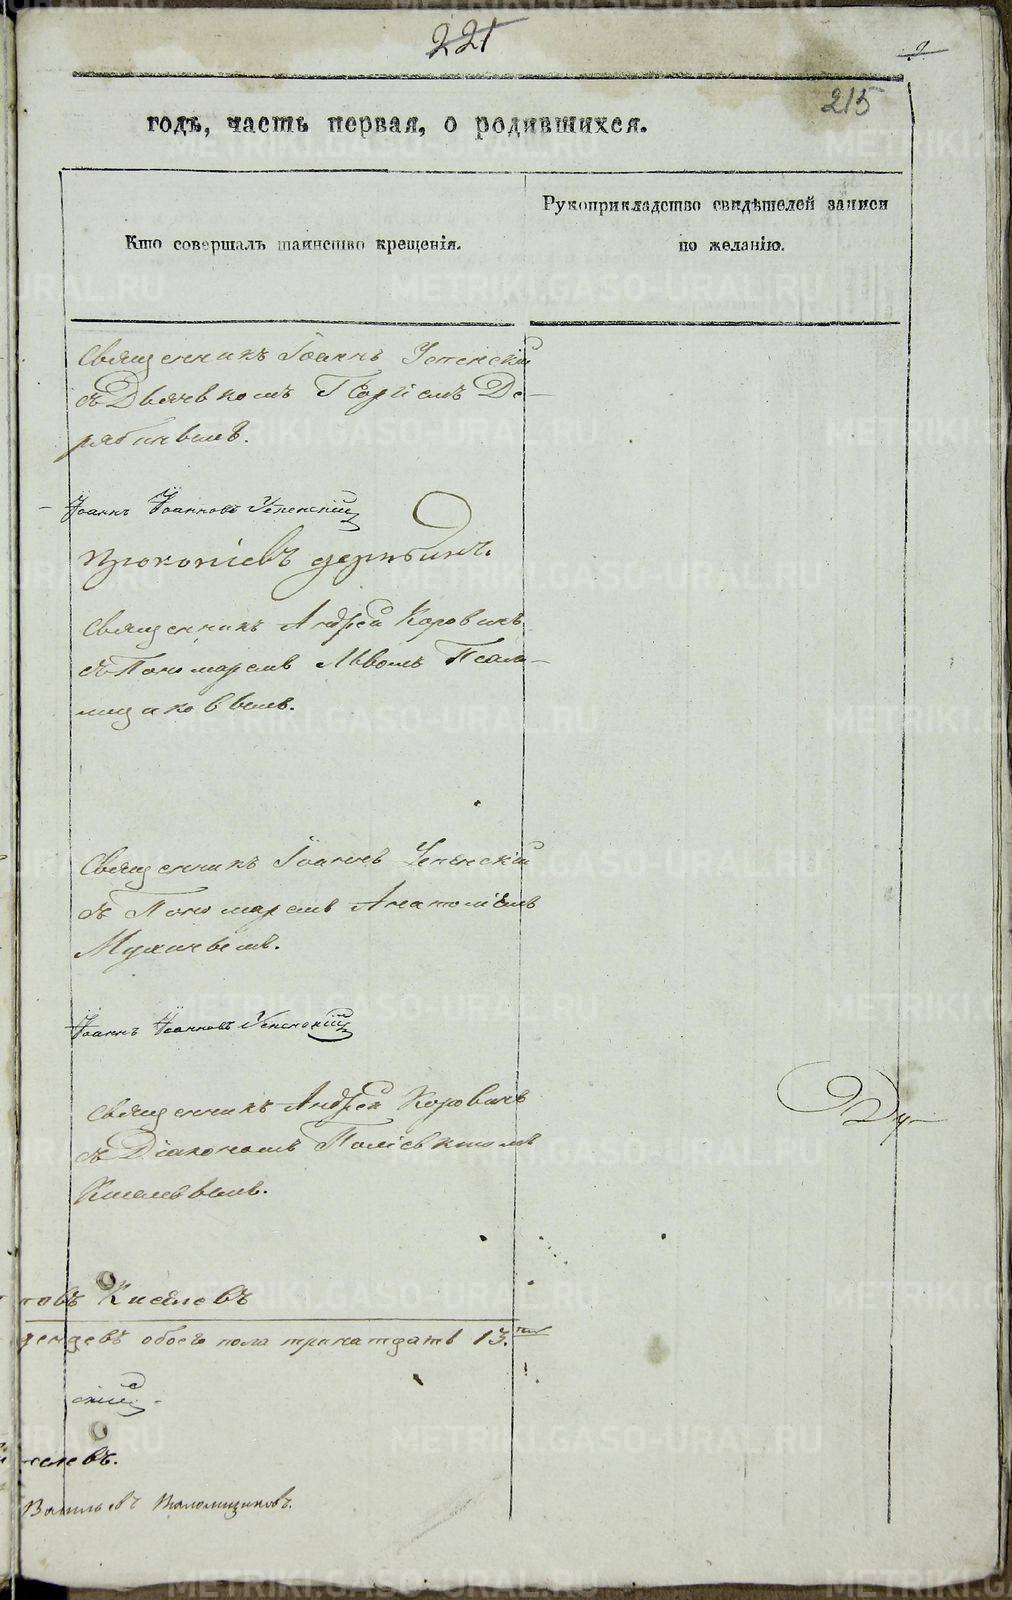 221
2
215
годъ, часть первая, о родившихся.
Кто совершалъ таинство крещенія.
Рукоприкладство свидѣтелей записи
по желанію.
Священникъ Іоаннъ Успенскій
съ Дьячкомъ Георгіемъ Де-
рябинымъ.
Іоаннъ Іоанновъ Успенскій
Прокопіевъ Дерябинъ.
Священникъ Андрей Коровинъ
съ Пономаремъ Львомъ Псало-
мщиковымъ.
Священникъ Іоаннъ Успенскій
съ Пономаремъ Анатоліемъ
Мухинымъ.
Іоаннъ Іоанновъ Успенскій
Священникъ Андрей Коровинъ
съ Діакономъ Поліевктомъ
Киселевымъ.
товъ Киселевъ
денцевъ обоего пола тринатцать 13.
скій
селевъ.
Васильевъ Псаломщиковъ.
METRIKI.GASO-URAL.RU